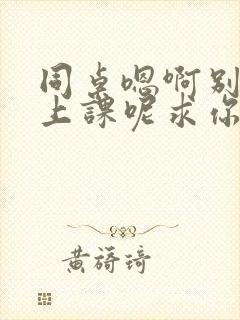 同桌嗯啊别
上课呢求你
黄旖琦